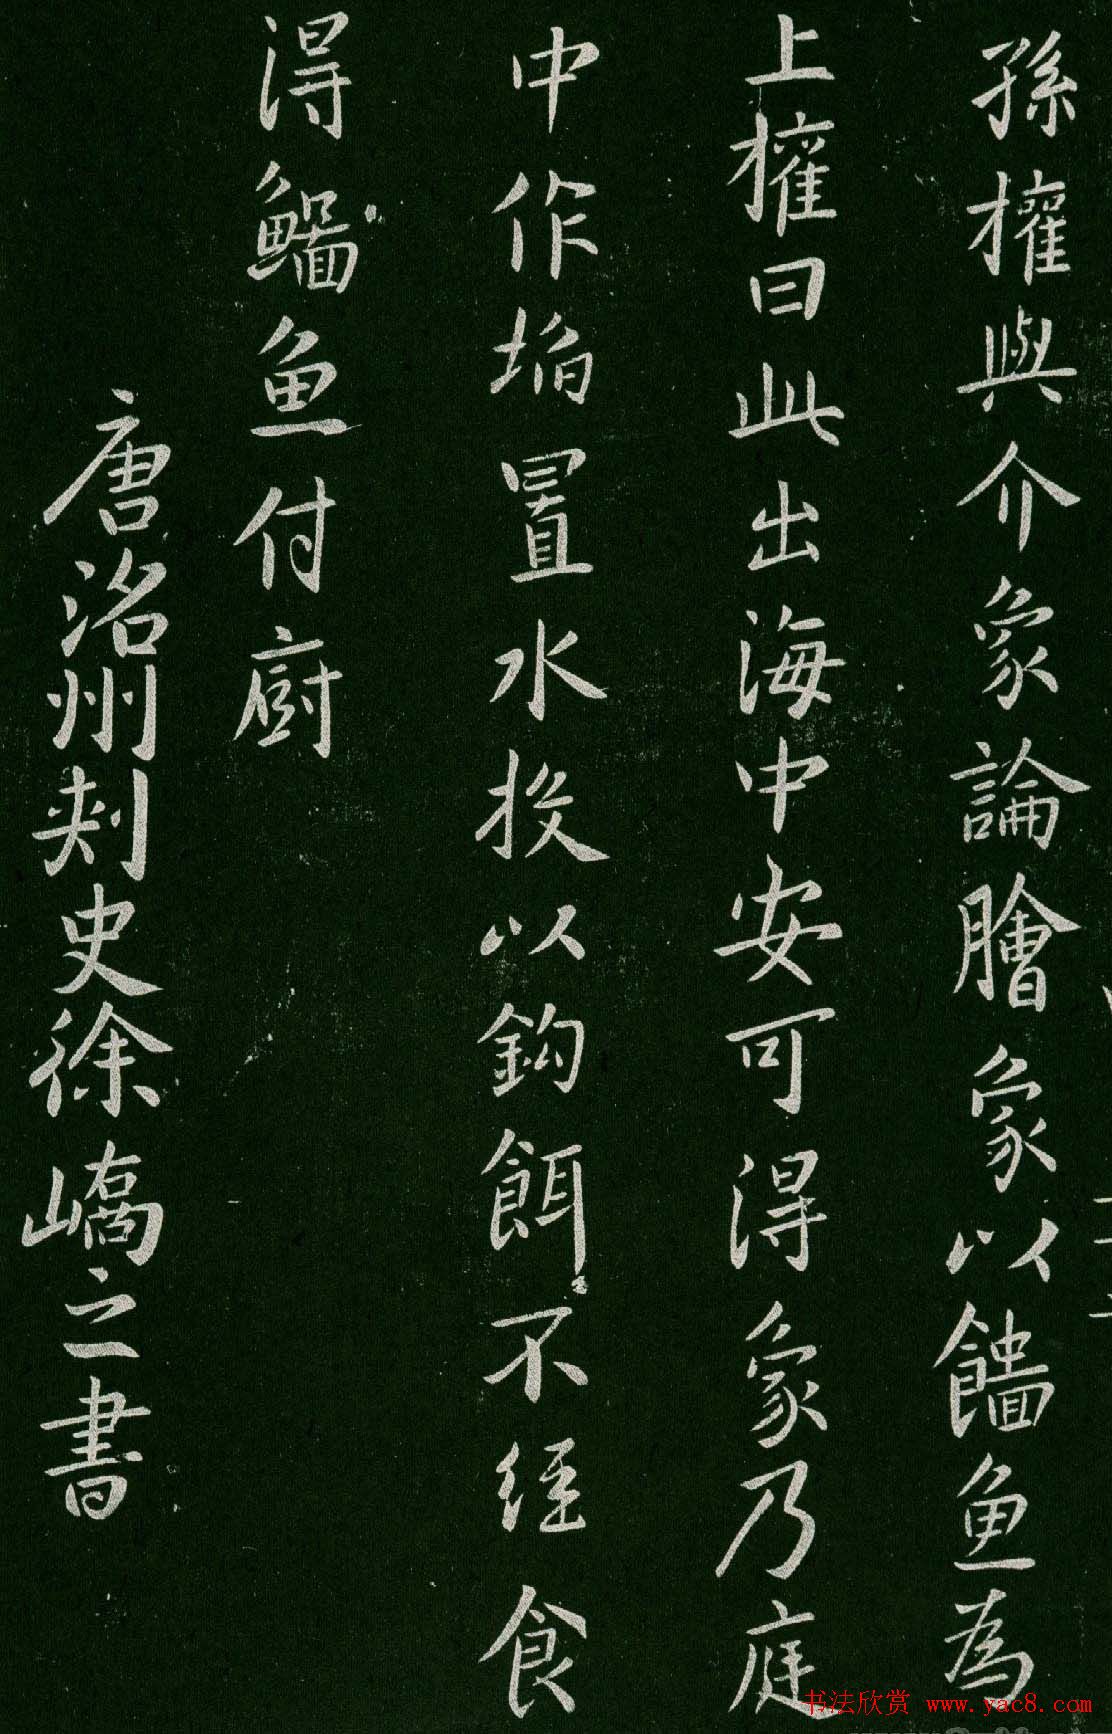 孫權與介象論膾象以魚為
上權曰此出海中安可得象乃庭
中作埳置水投以鈎餌不經食
得鯔魚付廚
唐洺州刾史徐嶠之書
书法欣赏 www.yac8.com